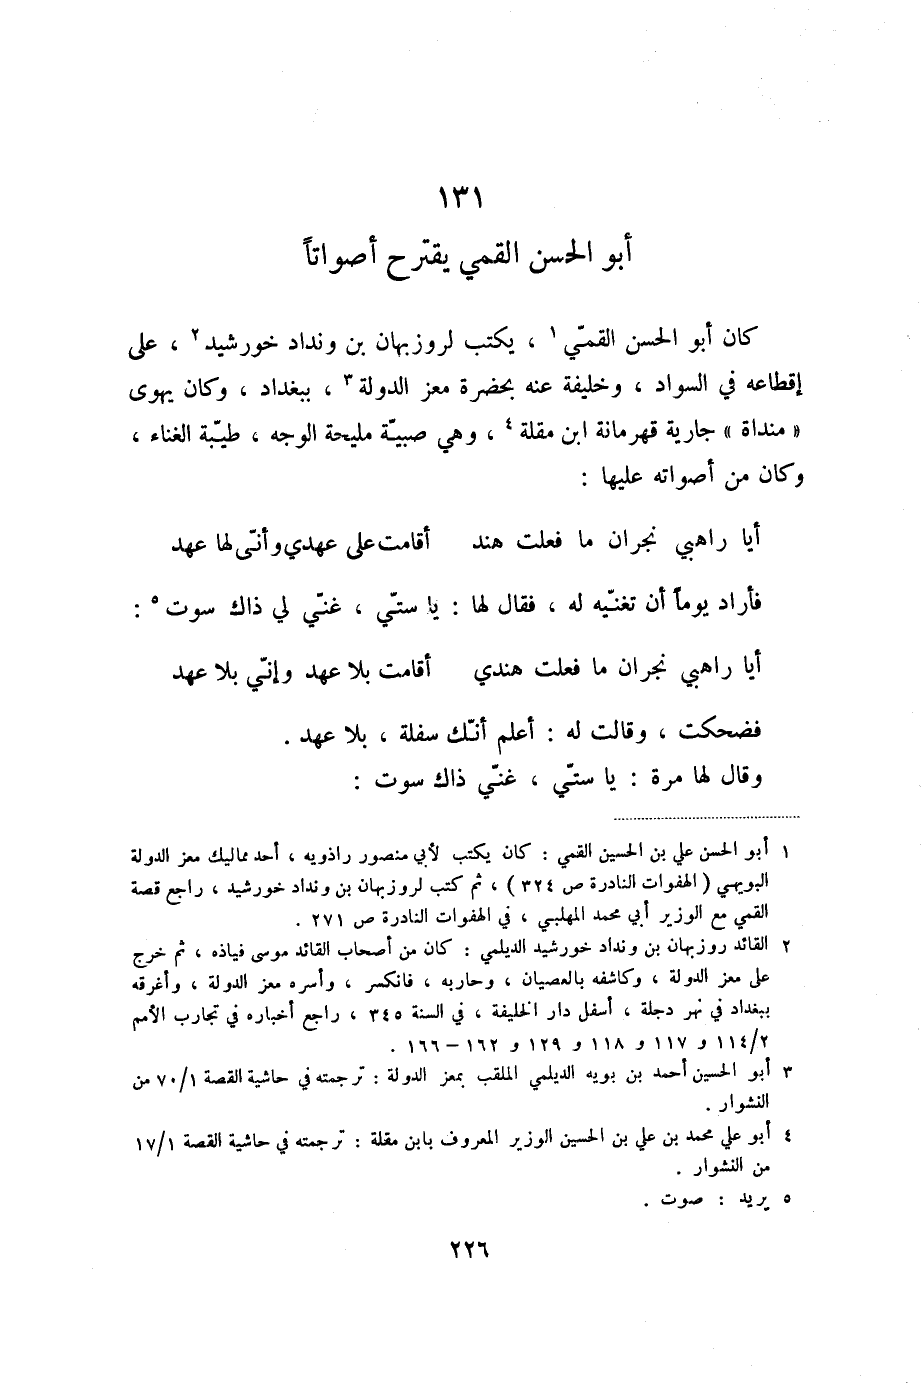 ١٣١
أبو الحسن القمي يقترح أصواتاً
كان أبو الحسن القمّي ١ ، يكتب لروزبهان بن ونداد خورشيد ٢ ، على
إقطاعه في السواد ، وخليفة عنه بحضرة معز الدولة ٣ ، ببغداد ، وكان يهوى
« منداة » جارية قهرمانة ابن مقلة ٤ ، وهي صبيّة مليحة الوجه ، طيّبة الغناء ،
وكان من أصواته عليها :
أيا راهبي نجران ما فعلت هند    أقامت على عهدي وأنّى لها عهد
فأراد يوماً أن تغنّيه له ، فقال لها : يا ستّي ، غنّي لي ذاك سوت ٥ :
أيا راهبي نجران ما فعلت هندي    أقامت بلا عهد وإنّي بلا عهد
فضحكت ، وقالت له : أعلم أنّك سفلة ، بلا عهد .
وقال لها مرة : يا ستّي ، غنّي ذاك سوت :
١ أبو الحسن علي بن الحسين القمي : كان يكتب لأبي منصور راذويه ، أحد مماليك معز الدولة
البويهي ( الهفوات النادرة ص ٣٢٤ ) ، ثم كتب لروزبهان بن ونداد خورشيد ، راجع قصة
القمي مع الوزير أبي محمد المهلبي ، في الهفوات النادرة ص ٢٧١ .
٢ القائد روزبهان بن ونداد خورشيد الديلمي : كان من أصحاب القائد موسى فياذه ، ثم خرج
على معز الدولة ، وكاشفه بالعصيان ، وحاربه ، فانكسر ، وأسره معز الدولة ، وأغرقه
ببغداد في نهر دجلة ، أسفل دار الخليفة ، في السنة ٣٤٥ ، راجع أخباره في تجارب الأمم
١١٤/٢ و ١١٧ و ١١٨ و ١٢٩ و ١٦٢ – ١٦٦ .
٣ أبو الحسين أحمد بن بويه الديلمي الملقب بمعز الدولة : ترجمته في حاشية القصة ٧٠/١ من
النشوار .
٤ أبو علي محمد بن علي بن الحسين الوزير المعروف بابن مقلة : ترجمته في حاشية القصة ١٧/١
من النشوار .
٥ يريد : صوت .
٢٢٦